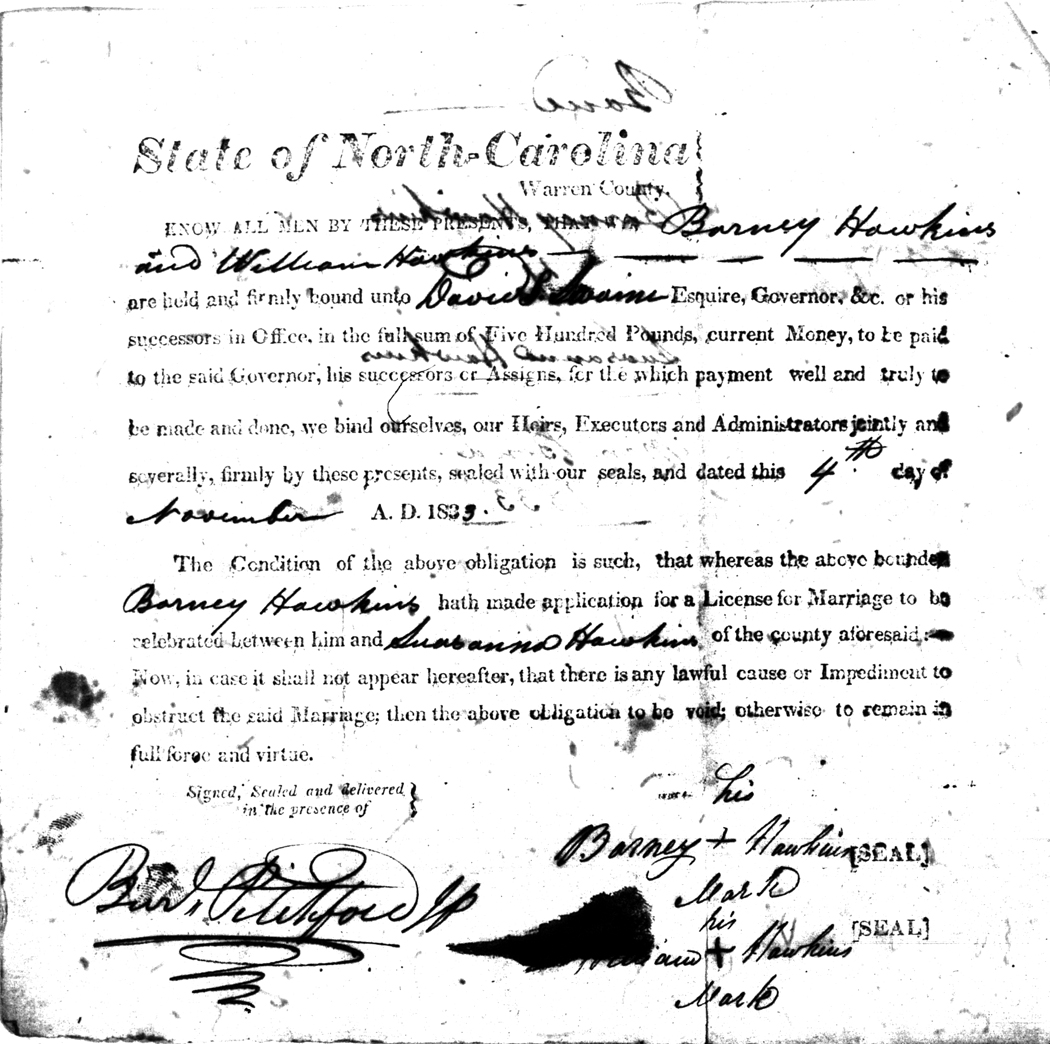 State of North-Carolina
Warren County.
KNOW ALL MEN BY THESE PRESENTS, THAT WE Barney Hawkins
and William Hawkins
are held and firmly bound unto David L Swaine Esquire, Governor, &c. or his
successors in Office, in the full sum of Five Hundred Pounds, current Money, to be paid
to the said Governor, his successors or Assigns, for the which payment well and truly to
be made and done, we bind ourselves, our Heirs, Executors and Administrators jointly and
severally, firmly by these presents, sealed with our seals, and dated this 4th day of
November A. D. 1833.
The Condition of the above obligation is such, that whereas the above bounden
Barney Hawkins hath made application for a License for Marriage to be
celebrated between him and Susanna Hawkins of the county aforesaid:
Now, in case it shall not appear hereafter, that there is any lawful cause or Impediment to
obstruct the said Marriage; then the above obligation to be void; otherwise to remain in
full force and virtue.
Signed, Sealed and delivered
in the presence of
his
Barney + Hawkins [SEAL]
Mark
Pitchford JP
his
William + Hawkins [SEAL]
Mark